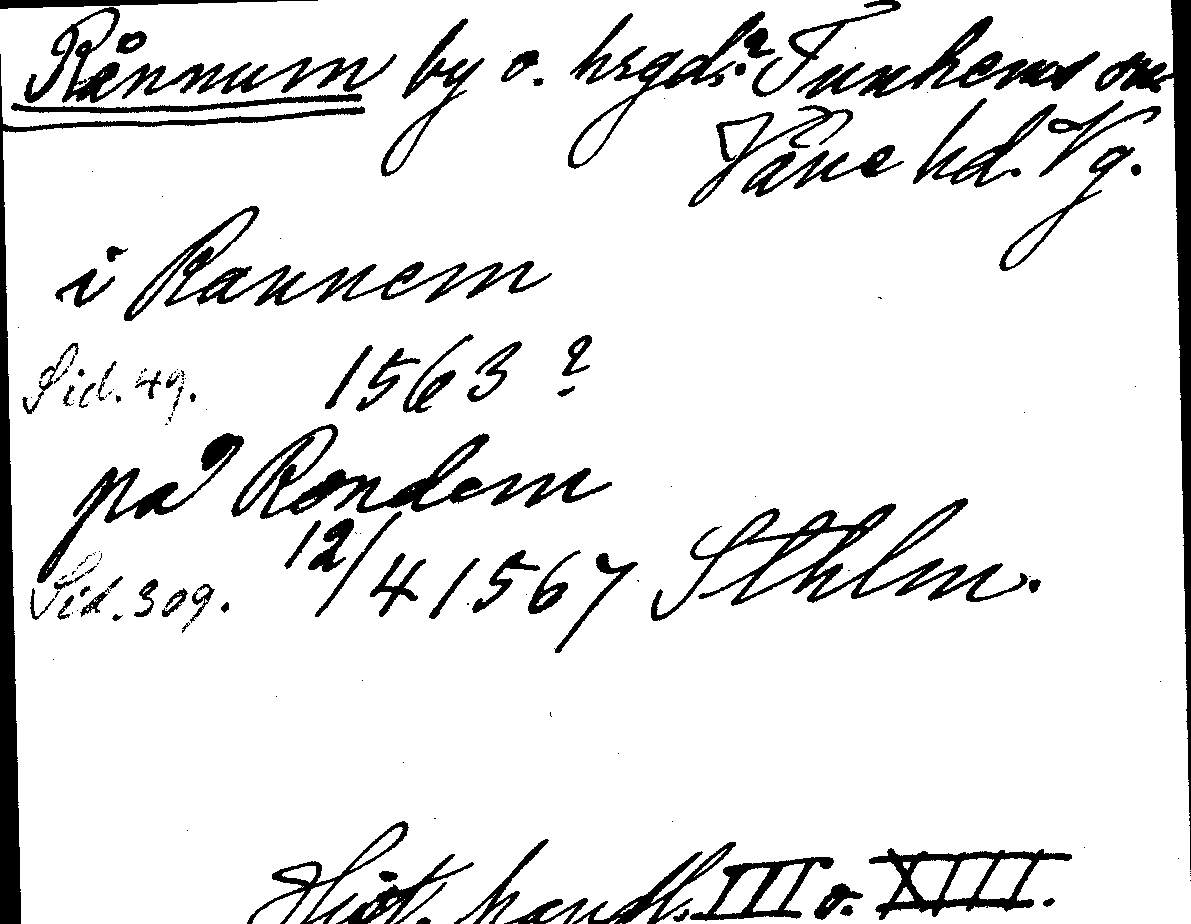 Rånnum by o. hsgd.? Tunhems sn
Väne hd. Vg.
i Rannem
Sid. 49. 1563 ?
på Rondem
Sid. 309. 12/4 1567 Sthlm.
Hist. handl. III o. XIII.